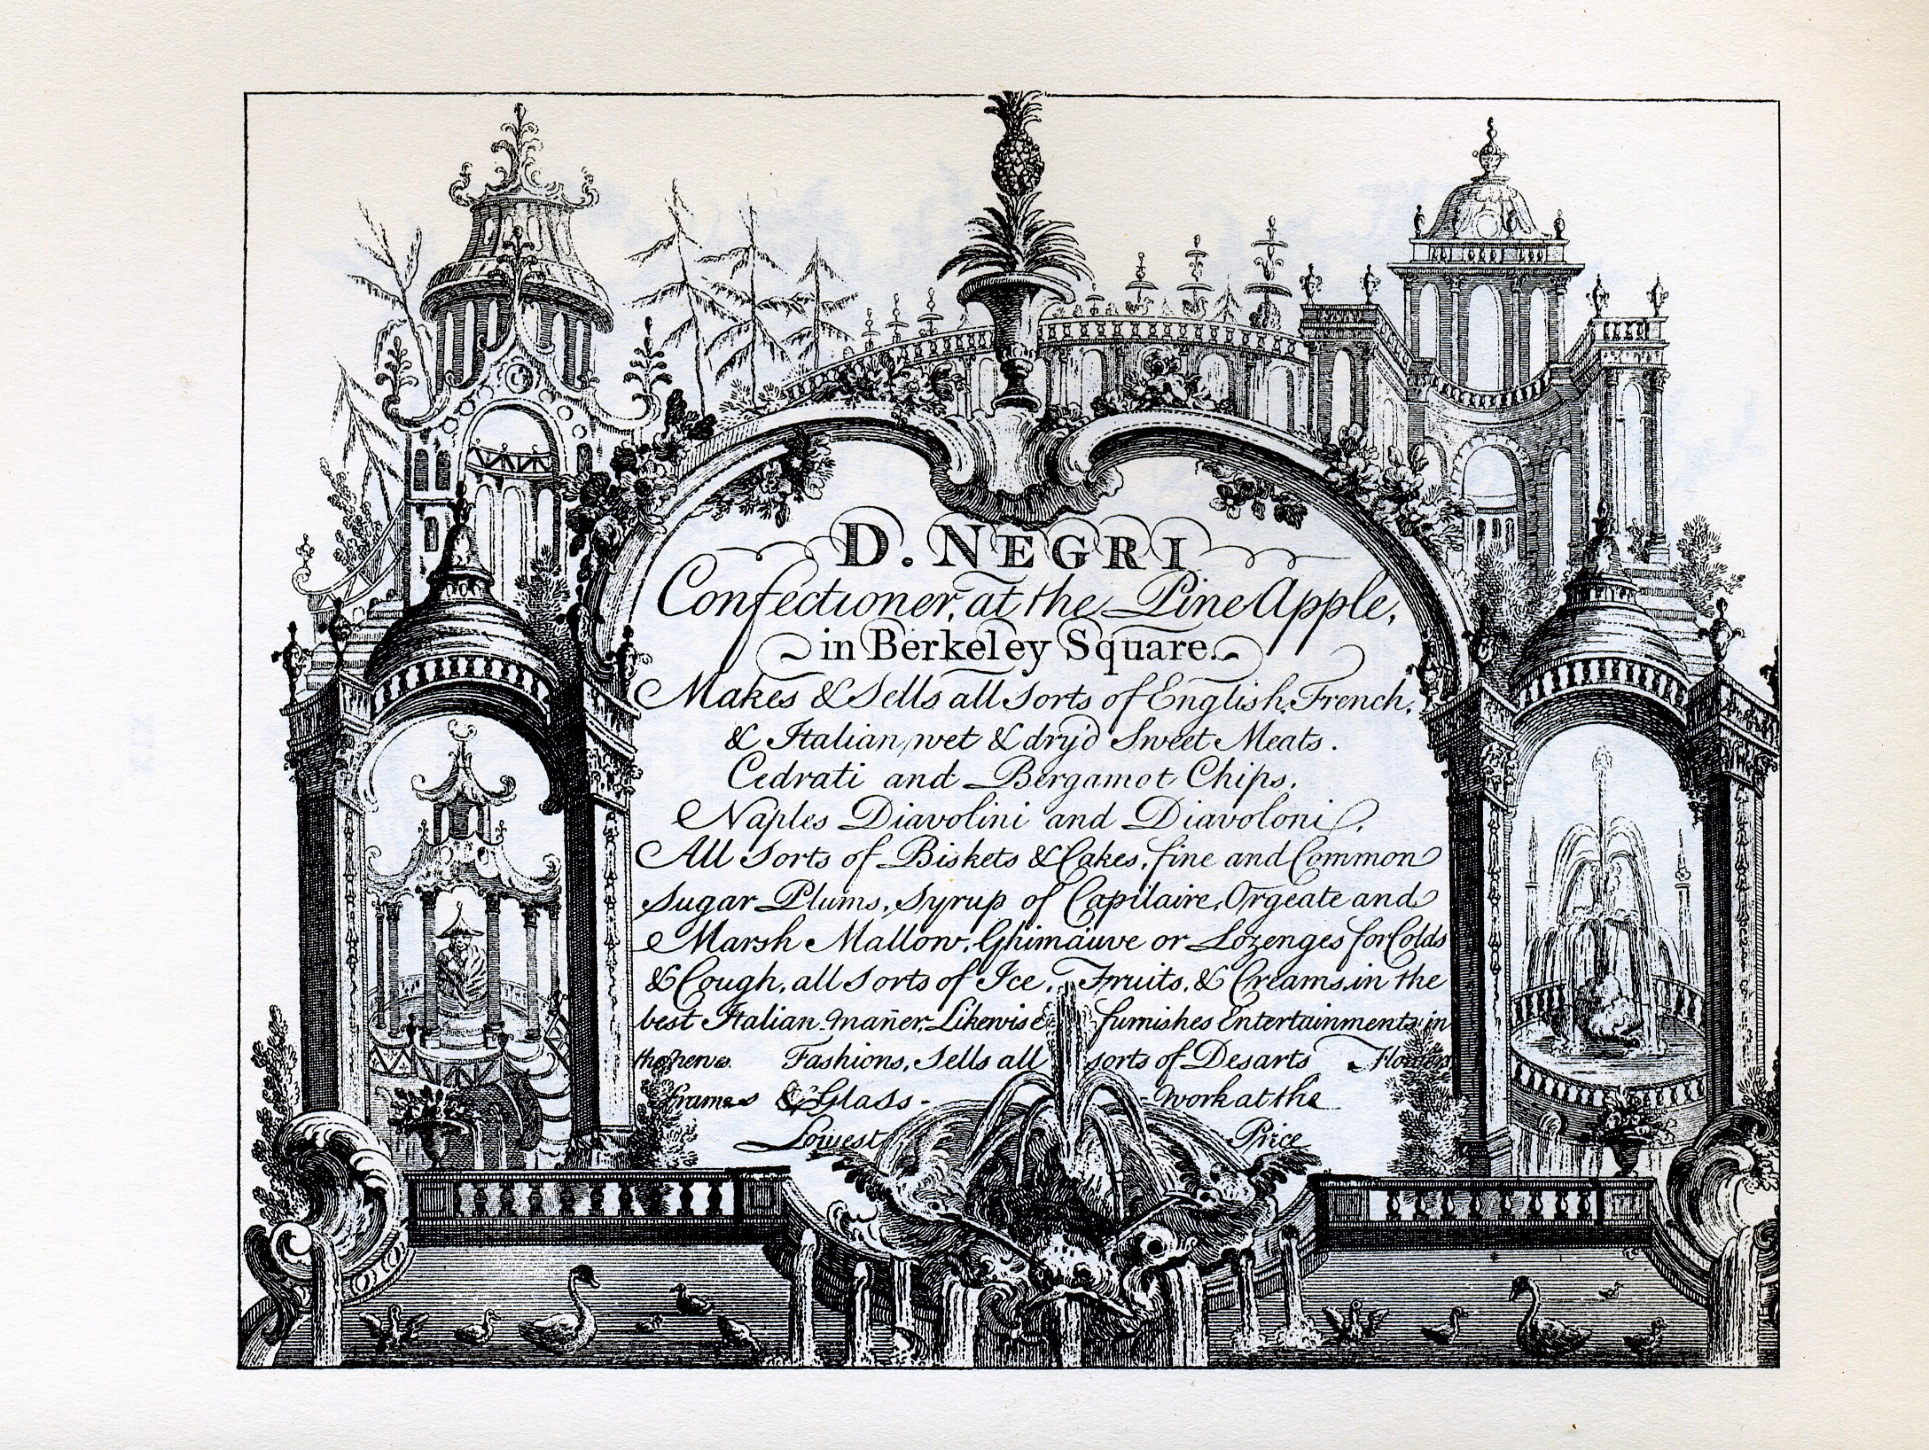 D. NEGRI
Confectioner, at the Pine Apple,
in Berkeley Square.
Makes & Sells all Sorts of English, French,
& Italian, wet & dry'd Sweet Meats.
Cedrati and Bergamot Chips,
Naples Diavolini and Diavoloni,
All Sorts of Biskets & Cakes, fine and Common
Sugar Plums, Syrup of Capilaire, Orgeate and
Marsh Mallow, Ghimauve or Lozenges for Colds
& Cough, all Sorts of Ice, Fruits, & Creams, in the
best Italian mañer, Likewise furnishes Entertainments in
Fashions, Sells all sorts of Desarts Flower
frames & Glass-work at the
Lowest Price